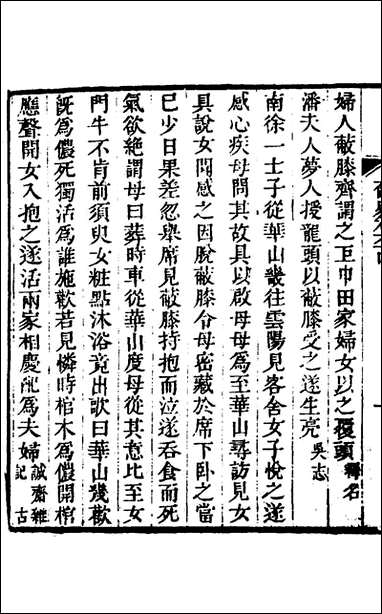 婦人蔽膝齊謂之巨巾田家婦女以之覆頭釋名
潘夫人夢人授龍頭以蔽膝受之遂生亮吳志
南徐一士子從華山畿往雲陽見客舍女子悅之遂
感心疾母問其故具以啟母母爲至華山尋訪見女
具說女聞感之因脫蔽膝令母密藏於席下臥之當
已少日果差忽舉席見蔽膝持抱而泣遂吞食而死
氣欲絕謂母曰葬時車從華山度母從其意比至女
門牛不肯前須臾女粧點沐浴竟出歌曰華山畿歡
旣爲儂死獨活爲誰施歡若見憐時棺木爲儂開棺
應聲開女入抱之遂活兩家相慶配爲夫婦誠齋雜記
古